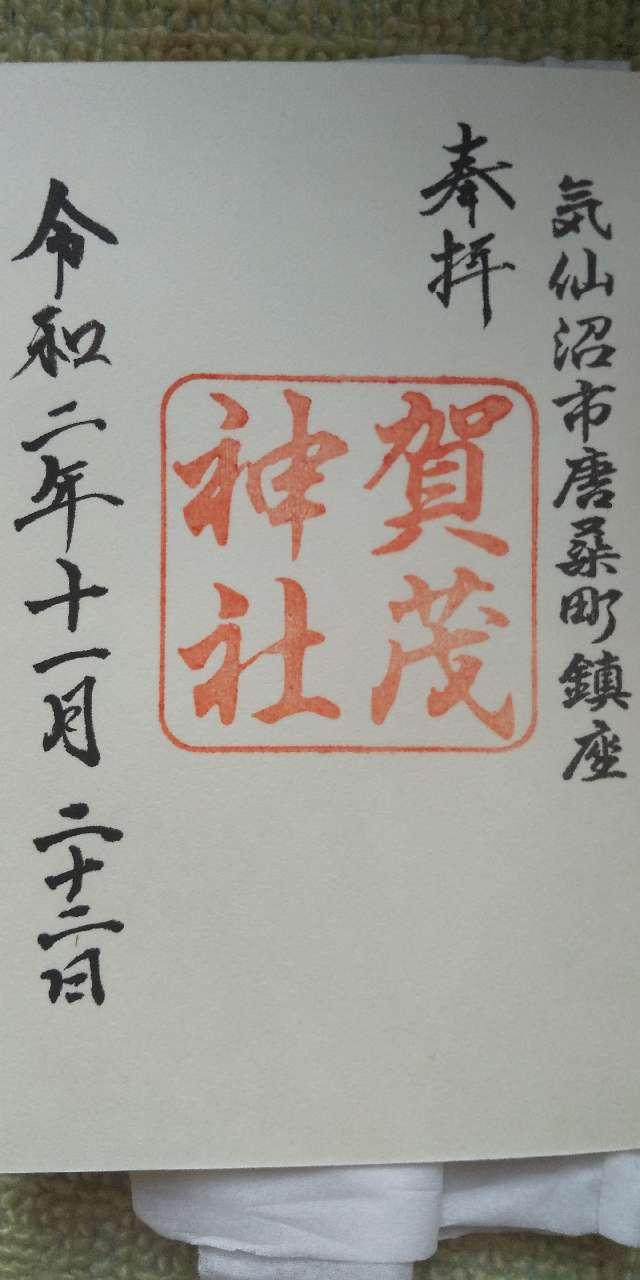 気仙沼市唐桑町鎮座
奉拝
賀茂
神社
令和二年十一月二十二日